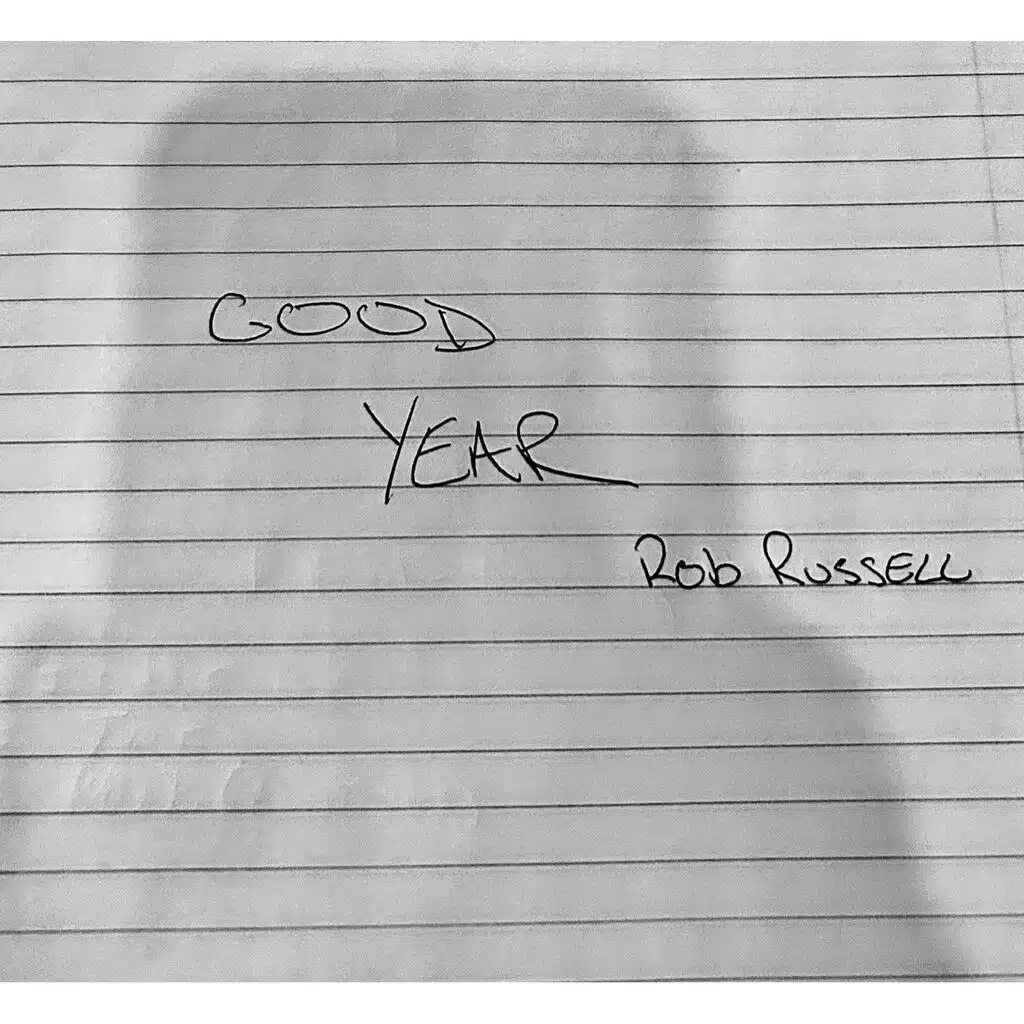 GOOD
YEAR
ROB RUSSELL